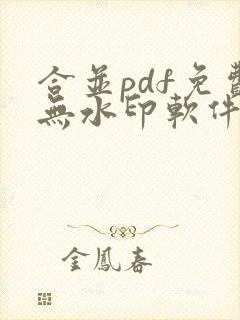 合並pdf免費
無水印軟件
金鳳春